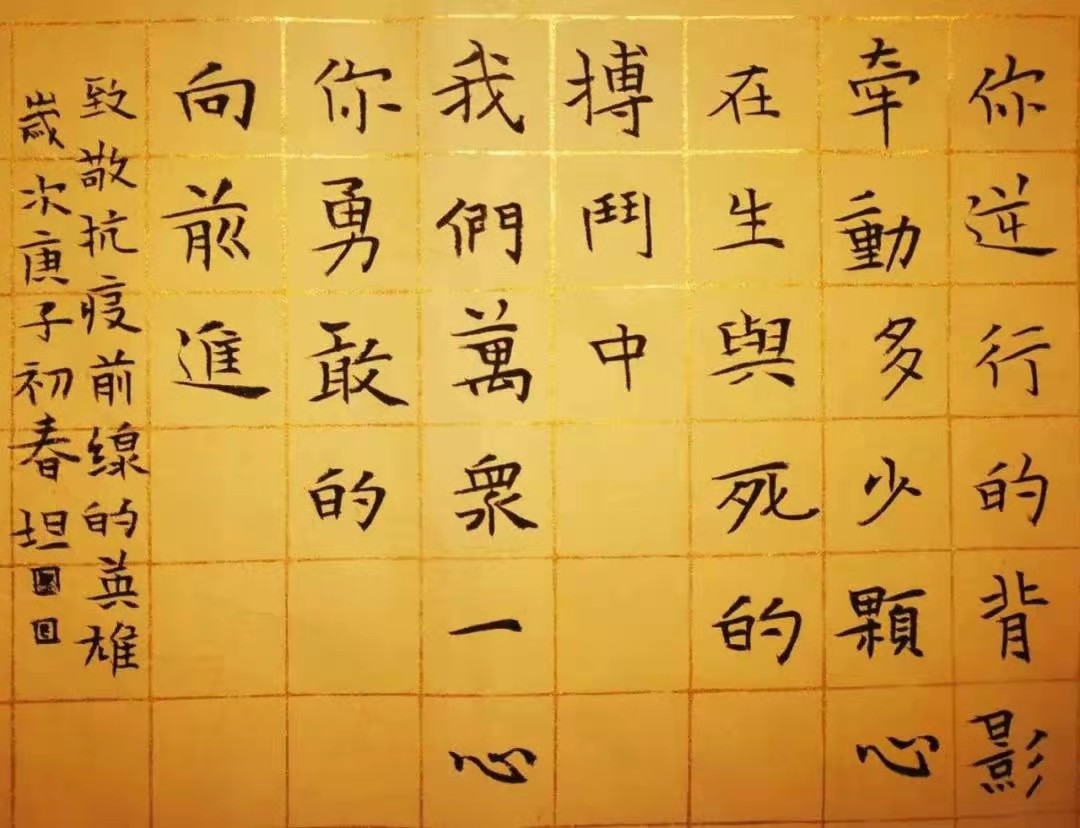 你逆行的背影
牽動多少顆心
在生與死的
搏鬥中
我們萬衆一心
你勇敢的
向前進
致敬抗疫前線的英雄
歲次庚子初春坦